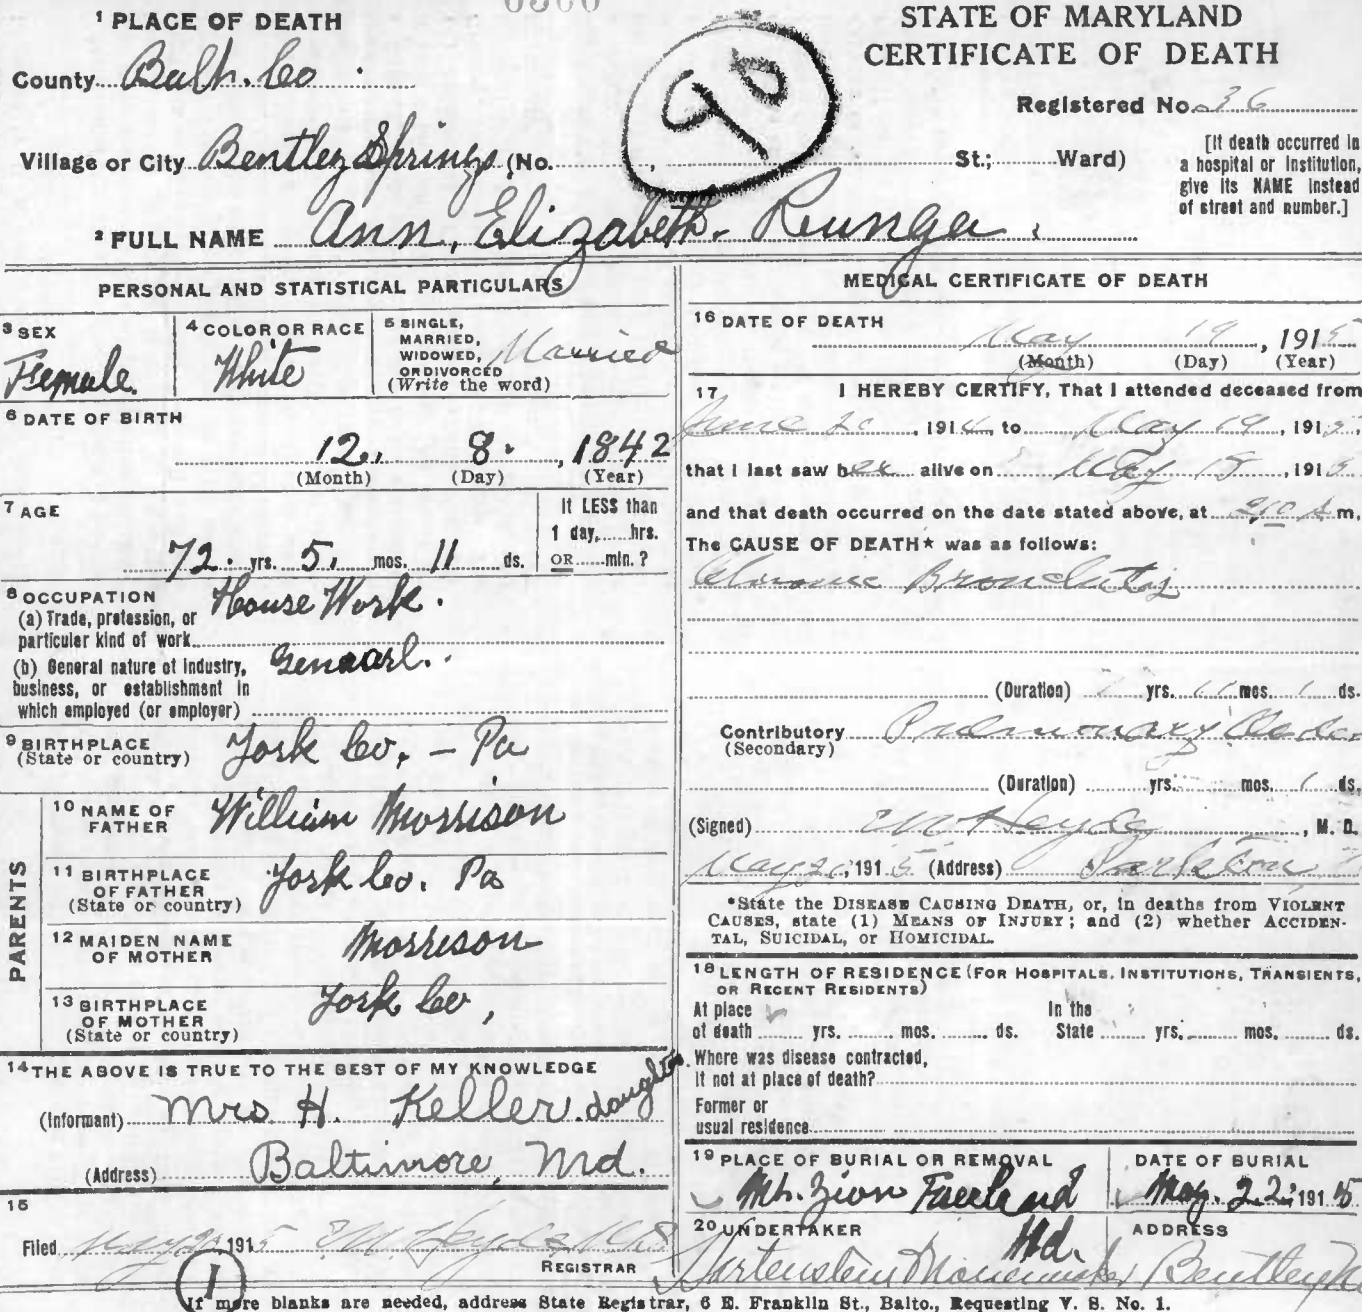 ¹ PLACE OF DEATH
County Balt. Co.
Village or City Bentley Springs (No. , St.; Ward)
90
STATE OF MARYLAND
CERTIFICATE OF DEATH
Registered No. 36
[If death occurred in
a hospital or institution,
give its NAME instead
of street and number.]
² FULL NAME Ann, Elizabeth. Runga.
PERSONAL AND STATISTICAL PARTICULARS
³ SEX
Femule.
⁴ COLOR OR RACE
White
⁵ SINGLE,
MARRIED,
WIDOWED,
OR DIVORCED
(Write the word)
Married
⁶ DATE OF BIRTH
12., 8. , 1842
(Month) (Day) (Year)
⁷ AGE
72. yrs. 5, mos. 11 ds.
If LESS than
1 day, hrs.
OR min.?
⁸ OCCUPATION
(a) Trade, profession, or
particular kind of work
House Work.
(b) General nature of industry,
business, or establishment in
which employed (or employer)
Genaarl.
⁹ BIRTHPLACE
(State or country)
York Co, - Pa
PARENTS
¹⁰ NAME OF
FATHER
William Morrison
¹¹ BIRTHPLACE
OF FATHER
(State or country)
York Co. Pa
¹² MAIDEN NAME
OF MOTHER
Morrison
¹³ BIRTHPLACE
OF MOTHER
(State or country)
York Co,
¹⁴ THE ABOVE IS TRUE TO THE BEST OF MY KNOWLEDGE
(Informant) Mrs. H. Keller daughter
(Address) Baltimore, Md.
15
Filed May 1915
REGISTRAR
MEDICAL CERTIFICATE OF DEATH
¹⁶ DATE OF DEATH
May 19, 1915
(Month) (Day) (Year)
17 I HEREBY CERTIFY, That I attended deceased from
June 20, 1914, to May 19, 1915,
that I last saw her alive on May 18, 1915
and that death occurred on the date stated above, at A m,
The CAUSE OF DEATH* was as follows:
Chronic Bronchitis
(Duration) yrs. 11 mos. 1 ds.
Contributory Pulmonary
(Secondary)
(Duration) yrs. mos. 1 ds.
(Signed) Heyde, M. D.
May 20, 1915 (Address) Parkton
*State the DISEASE CAUSING DEATH, or, in deaths from VIOLENT
CAUSES, state (1) MEANS OF INJURY; and (2) whether ACCIDEN-
TAL, SUICIDAL, or HOMICIDAL.
¹⁸ LENGTH OF RESIDENCE (FOR HOSPITALS, INSTITUTIONS, TRANSIENTS,
OR RECENT RESIDENTS)
At place
of death yrs. mos. ds.
In the
State yrs. mos. ds.
Where was disease contracted,
if not at place of death?
Former or
usual residence
¹⁹ PLACE OF BURIAL OR REMOVAL
Mt. Zion Md.
DATE OF BURIAL
May. 22, 1915
²⁰ UNDERTAKER
Hartenstein
ADDRESS
Bentley
1
If more blanks are needed, address State Registrar, 6 E. Franklin St., Balto., Requesting V. S. No. 1.